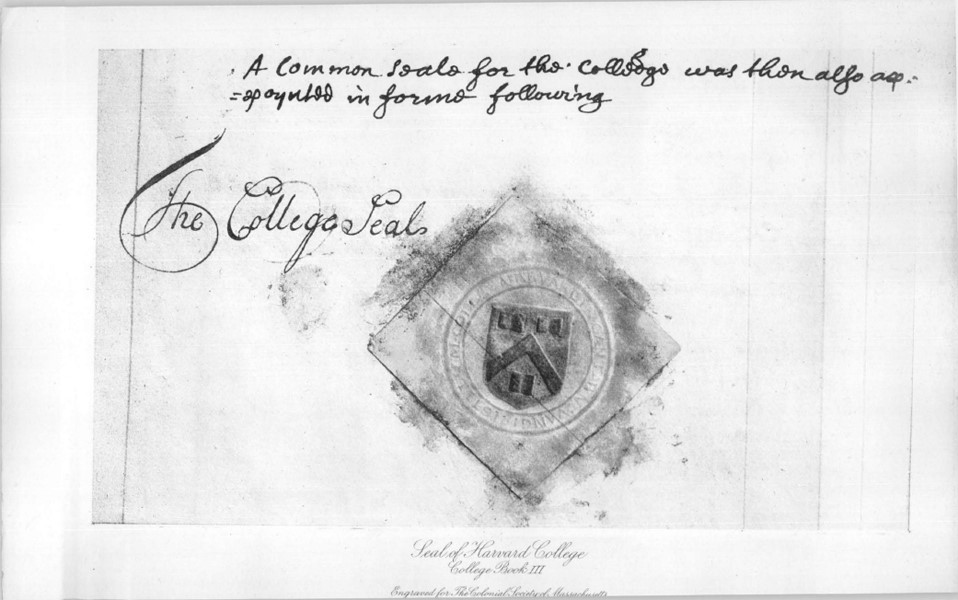 A Common seale for the Colledge was then also ap:
=poynted in forme following
The College Seal
Seal of Harvard College
College Book III
Engraved for The Colonial Society of Massachusetts